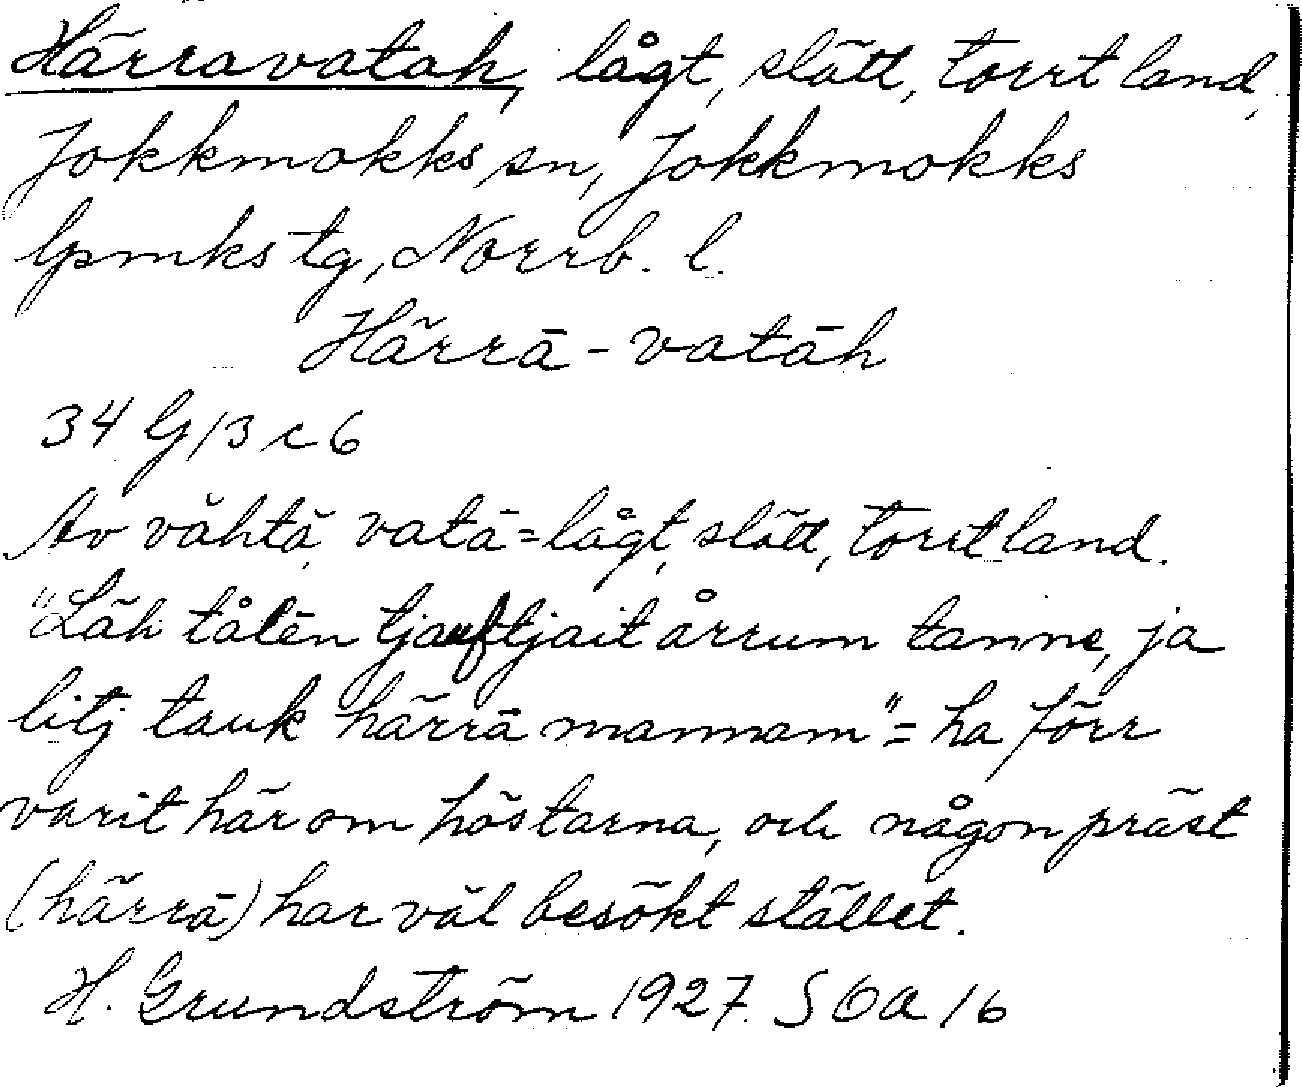 Härravatah, lågt, slätt, torrt land,
Jokkmokks sn, Jokkmokks
lpmks tg, Norrb. l.
Härrā-vatāh
34 G/3 c 6
Av vǎhtǎ, vatā=lågt, slätt, torrt land.
"Läh tålēn tjauftjait årrum tanne, ja
litj tauk härrā mannam"= ha förr
varit här om höstarna, och någon präst
(härrā) har väl besökt stället.
H. Grundström 1927. SOA 16